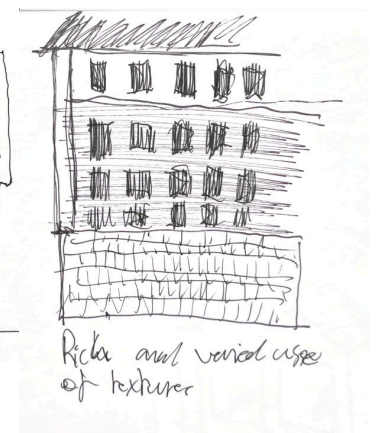 Rich and varied usage
of textures